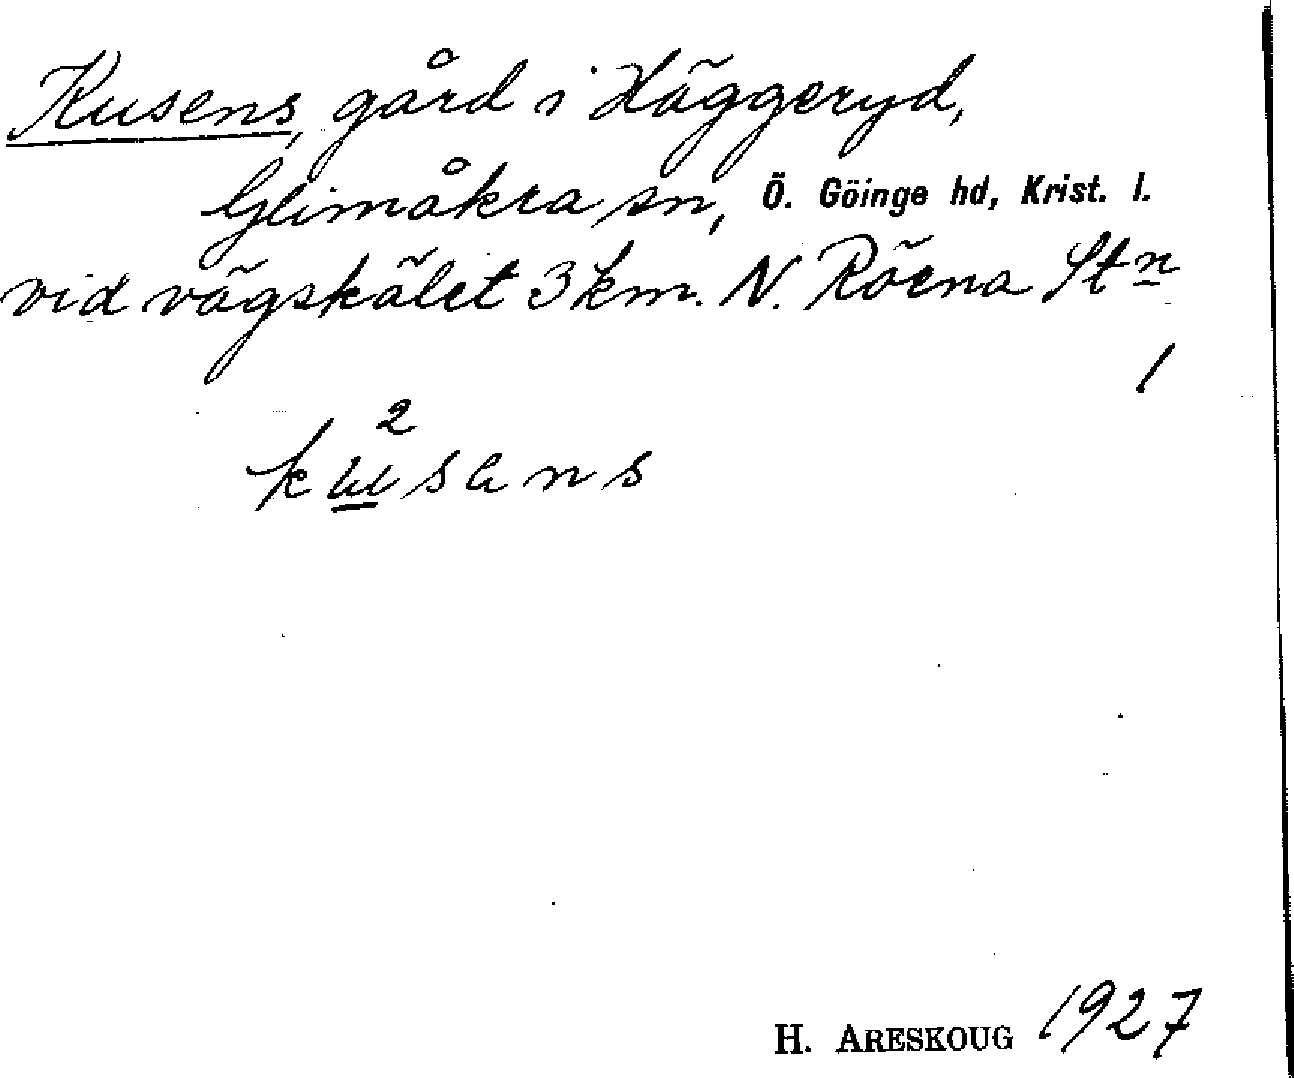 Kusens, gård i Häggeryd,
Glimåkra sn, Ö. Göinge hd, Krist. l.
vid vägskälet 3 km. N. Röena Stn
/
2
kusans
H. ARESKOUG 1927